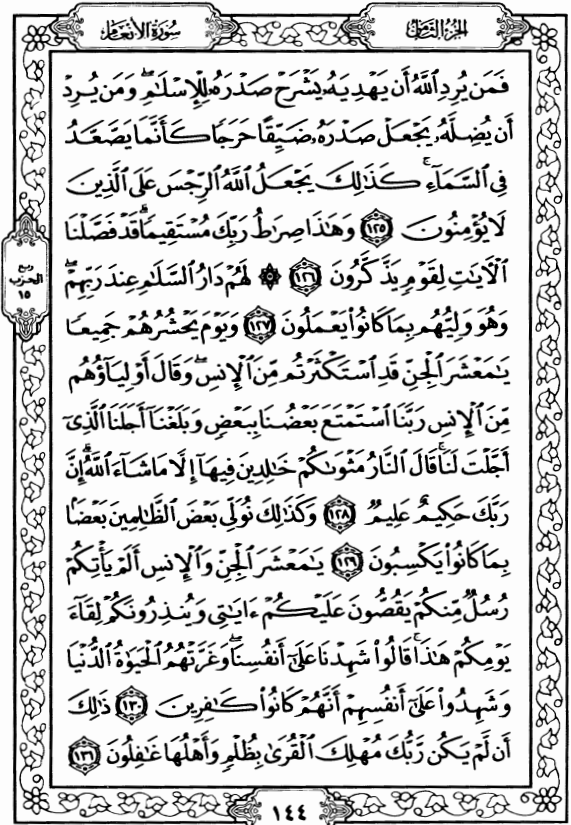 الجزء الثامن
سورة الأنعام
فَمَن يُرِدِ ٱللَّهُ أَن يَهْدِيَهُۥ يَشْرَحْ صَدْرَهُۥ لِلْإِسْلَٰمِ ۖ وَمَن يُرِدْ
أَن يُضِلَّهُۥ يَجْعَلْ صَدْرَهُۥ ضَيِّقًا حَرَجًا كَأَنَّمَا يَصَّعَّدُ
فِى ٱلسَّمَآءِ ۚ كَذَٰلِكَ يَجْعَلُ ٱللَّهُ ٱلرِّجْسَ عَلَى ٱلَّذِينَ
لَا يُؤْمِنُونَ ١٢٥ وَهَٰذَا صِرَٰطُ رَبِّكَ مُسْتَقِيمًا ۗ قَدْ فَصَّلْنَا
ٱلْءَايَٰتِ لِقَوْمٍ يَذَّكَّرُونَ ١٢٦ ۞ لَهُمْ دَارُ ٱلسَّلَٰمِ عِندَ رَبِّهِمْ ۖ
ربع
الحزب
١٥
وَهُوَ وَلِيُّهُم بِمَا كَانُوا۟ يَعْمَلُونَ ١٢٧ وَيَوْمَ يَحْشُرُهُمْ جَمِيعًا
يَٰمَعْشَرَ ٱلْجِنِّ قَدِ ٱسْتَكْثَرْتُم مِّنَ ٱلْإِنسِ ۖ وَقَالَ أَوْلِيَآؤُهُم
مِّنَ ٱلْإِنسِ رَبَّنَا ٱسْتَمْتَعَ بَعْضُنَا بِبَعْضٍ وَبَلَغْنَآ أَجَلَنَا ٱلَّذِىٓ
أَجَّلْتَ لَنَا ۚ قَالَ ٱلنَّارُ مَثْوَىٰكُمْ خَٰلِدِينَ فِيهَآ إِلَّا مَا شَآءَ ٱللَّهُ ۗ إِنَّ
رَبَّكَ حَكِيمٌ عَلِيمٌ ١٢٨ وَكَذَٰلِكَ نُوَلِّى بَعْضَ ٱلظَّٰلِمِينَ بَعْضًۢا
بِمَا كَانُوا۟ يَكْسِبُونَ ١٢٩ يَٰمَعْشَرَ ٱلْجِنِّ وَٱلْإِنسِ أَلَمْ يَأْتِكُمْ
رُسُلٌ مِّنكُمْ يَقُصُّونَ عَلَيْكُمْ ءَايَٰتِى وَيُنذِرُونَكُمْ لِقَآءَ
يَوْمِكُمْ هَٰذَا ۚ قَالُوا۟ شَهِدْنَا عَلَىٰٓ أَنفُسِنَا ۖ وَغَرَّتْهُمُ ٱلْحَيَوٰةُ ٱلدُّنْيَا
وَشَهِدُوا۟ عَلَىٰٓ أَنفُسِهِمْ أَنَّهُمْ كَانُوا۟ كَٰفِرِينَ ١٣٠ ذَٰلِكَ
أَن لَّمْ يَكُن رَّبُّكَ مُهْلِكَ ٱلْقُرَىٰ بِظُلْمٍ وَأَهْلُهَا غَٰفِلُونَ ١٣١
١٤٤